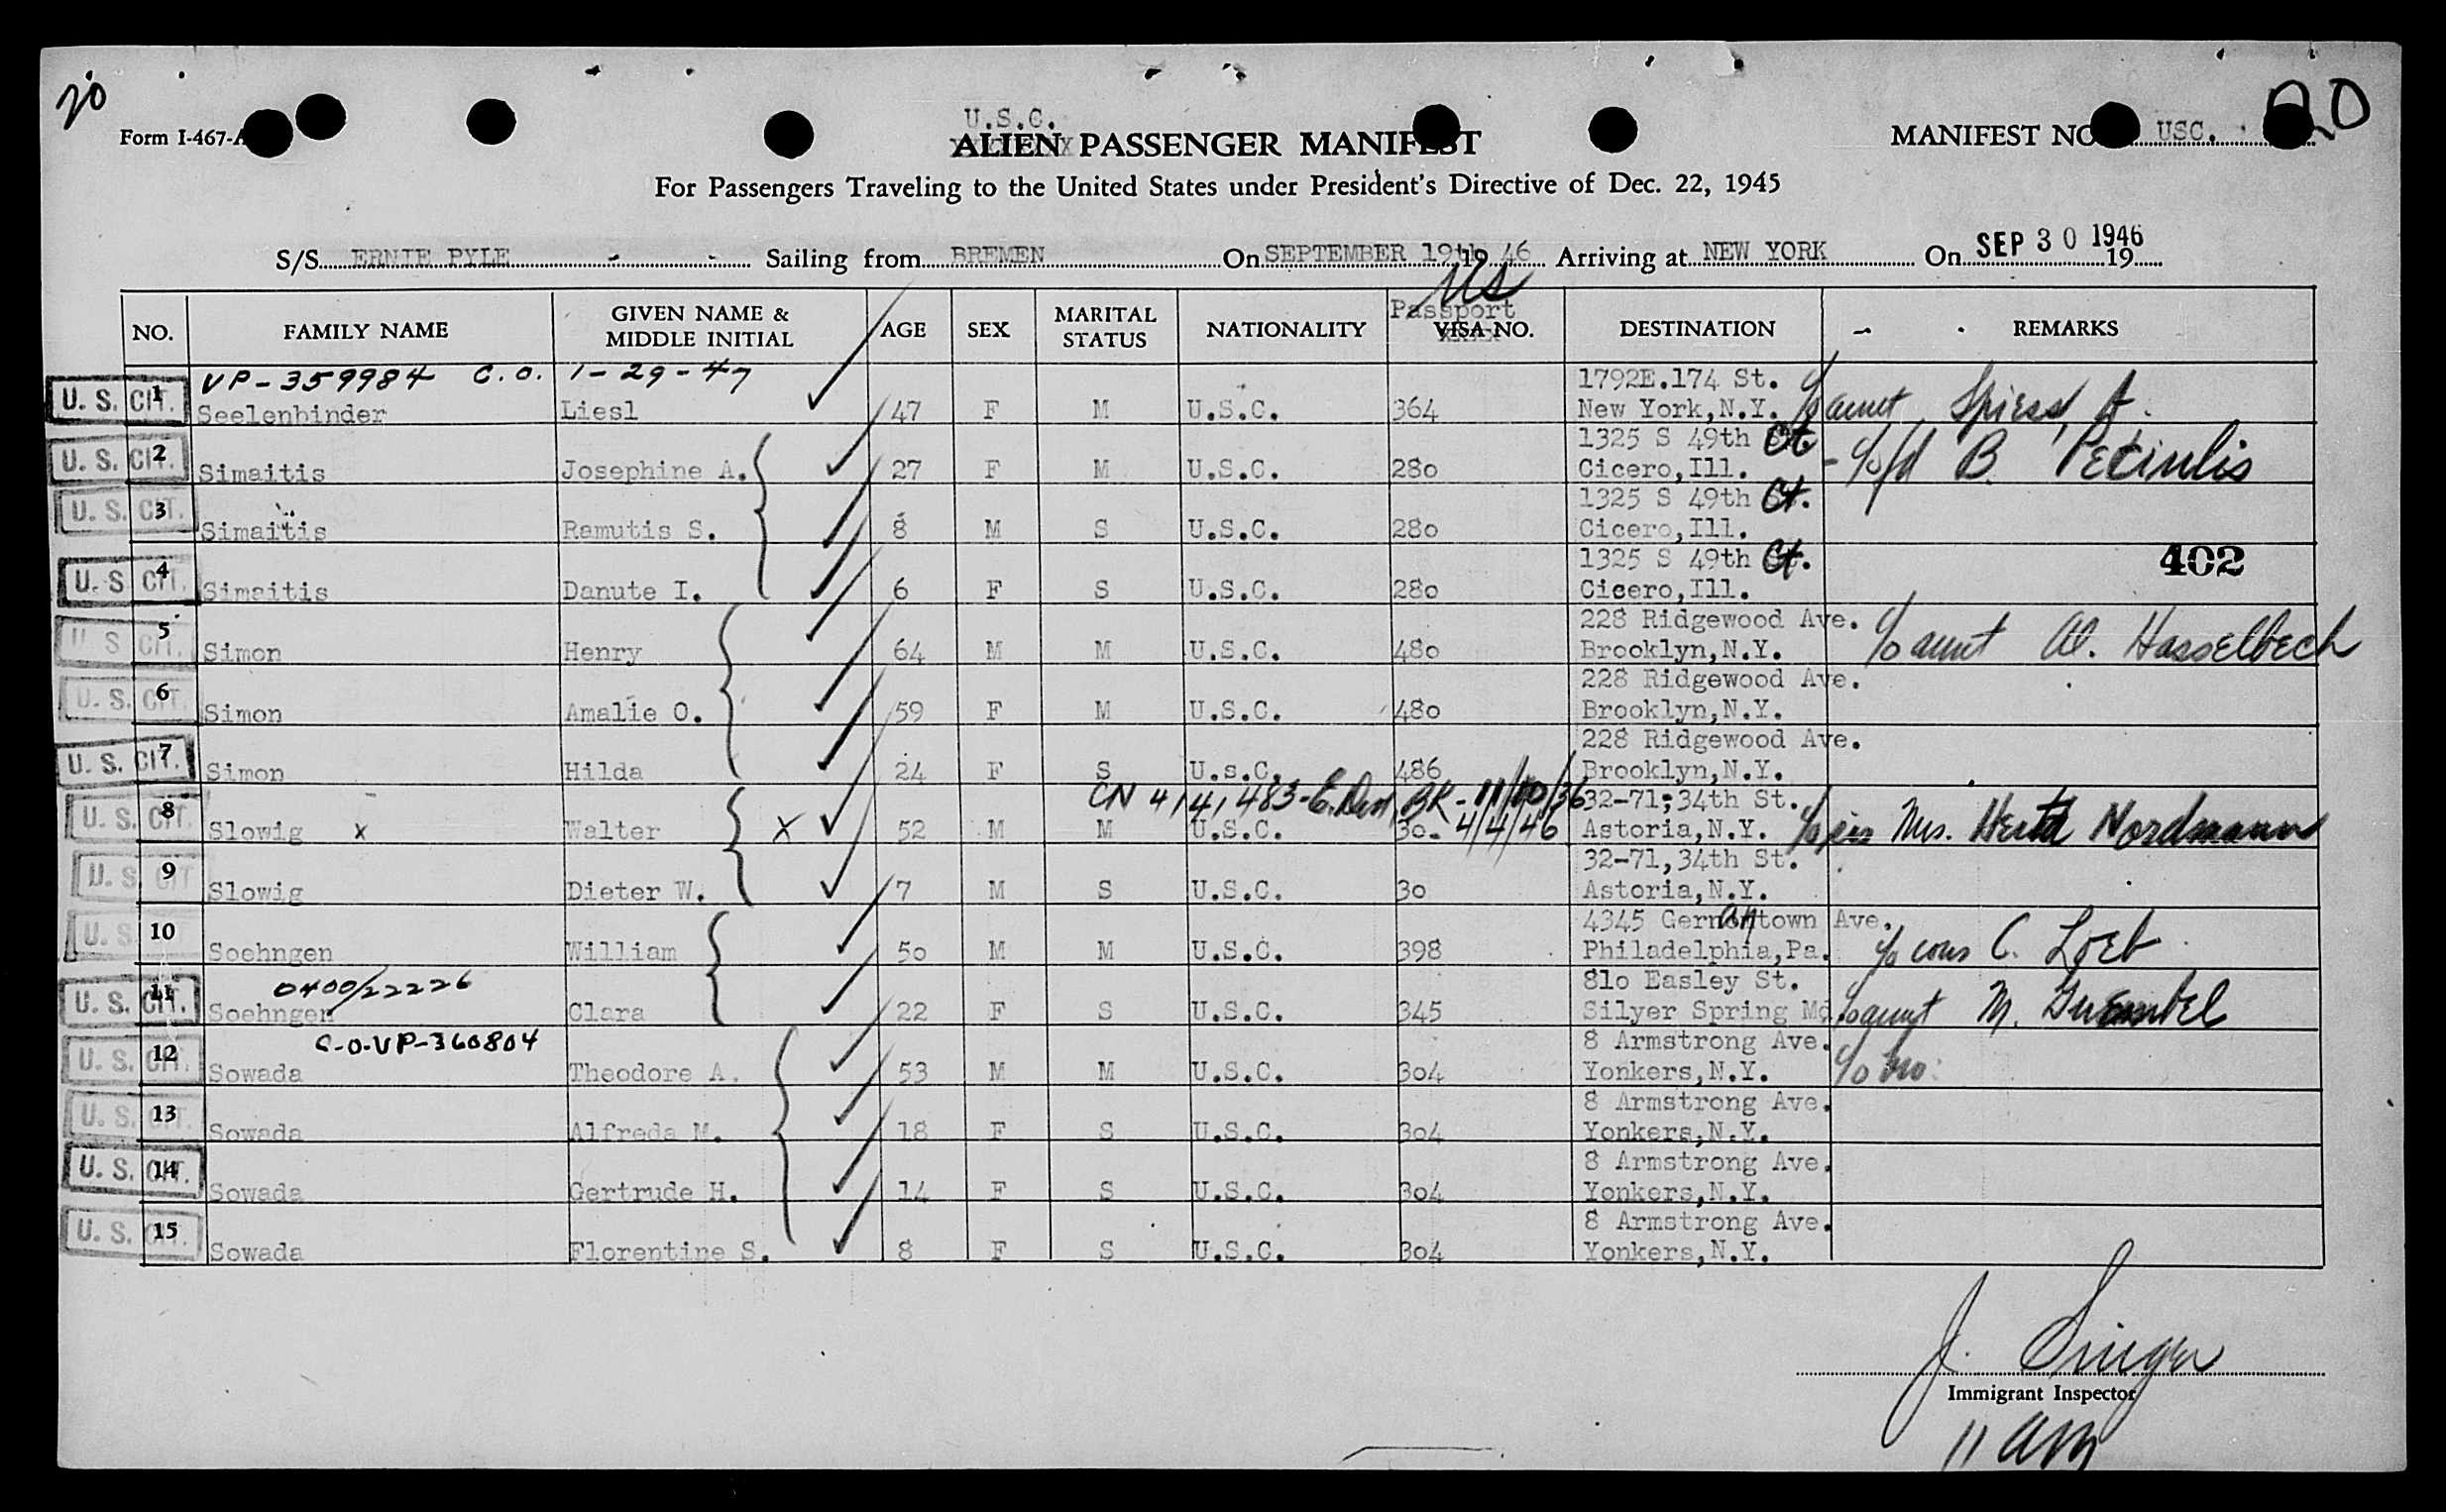 20
20
Form I-467-A
U.S.C.
ALIEN PASSENGER MANIFEST
MANIFEST NO. USC.
For Passengers Traveling to the United States under President's Directive of Dec. 22, 1945
S/S ERNIE PYLE Sailing from BREMEN On SEPTEMBER 19th 19 46 Arriving at NEW YORK On SEP 30 1946 19
US
NO. FAMILY NAME GIVEN NAME & MIDDLE INITIAL AGE SEX MARITAL STATUS NATIONALITY Passport VISA NO. DESTINATION REMARKS
VP-359984 C.O. 1-29-47 1792E.174 St.
U. S. CIT. 1 Seelenbinder Liesl 47 F M U.S.C. 364 New York,N.Y. c/o aunt Spiess, A.
1325 S 49th Ct.
U. S. CIT. 2 Simaitis Josephine A. 27 F M U.S.C. 280 Cicero,Ill. B. Petiulis
1325 S 49th Ct.
U. S. CIT. 3 Simaitis Ramutis S. 8 M S U.S.C. 280 Cicero,Ill.
1325 S 49th Ct. 402
U. S. CIT. 4 Simaitis Danute I. 6 F S U.S.C. 280 Cicero,Ill.
228 Ridgewood Ave.
U. S. CIT. 5 Simon Henry 64 M M U.S.C. 480 Brooklyn,N.Y. c/o aunt Al. Hasselbech
228 Ridgewood Ave.
U. S. CIT. 6 Simon Amalie O. 59 F M U.S.C. 480 Brooklyn,N.Y.
228 Ridgewood Ave.
U. S. CIT. 7 Simon Hilda 24 F S U.s.C. 486 Brooklyn,N.Y.
CN 4141483-E.Dist. BK-11/10/36 32-71;34th St.
U. S. CIT. 8 Slowig x Walter X 52 M M U.S.C. 30- 4/4/46 Astoria,N.Y. c/o sis Mrs. Herta Nordmann
32-71,34th St.
U. S. CIT 9 Slowig Dieter W. 7 M S U.S.C. 30 Astoria,N.Y.
4345 Germantown Ave.
U. S. 10 Soehngen William 50 M M U.S.C. 398 Philadelphia,Pa. c/o cous C. Loeb
0400/22226 810 Easley St.
U. S. CIT. 11 Soehngen Clara 22 F S U.S.C. 345 Silyer Spring Md. c/o aunt M. Guembel
C-O-VP-360804 8 Armstrong Ave.
U. S. CIT. 12 Sowada Theodore A. 53 M M U.S.C. 304 Yonkers,N.Y. c/o bro.
8 Armstrong Ave.
U. S. CIT. 13 Sowada Alfreda M. 18 F S U.S.C. 304 Yonkers,N.Y.
8 Armstrong Ave.
U. S. CIT. 14 Sowada Gertrude H. 14 F S U.S.C. 304 Yonkers,N.Y.
8 Armstrong Ave.
U. S. CIT. 15 Sowada Florentine S. 8 F S U.S.C. 304 Yonkers,N.Y.
J. Singer
Immigrant Inspector
11 am